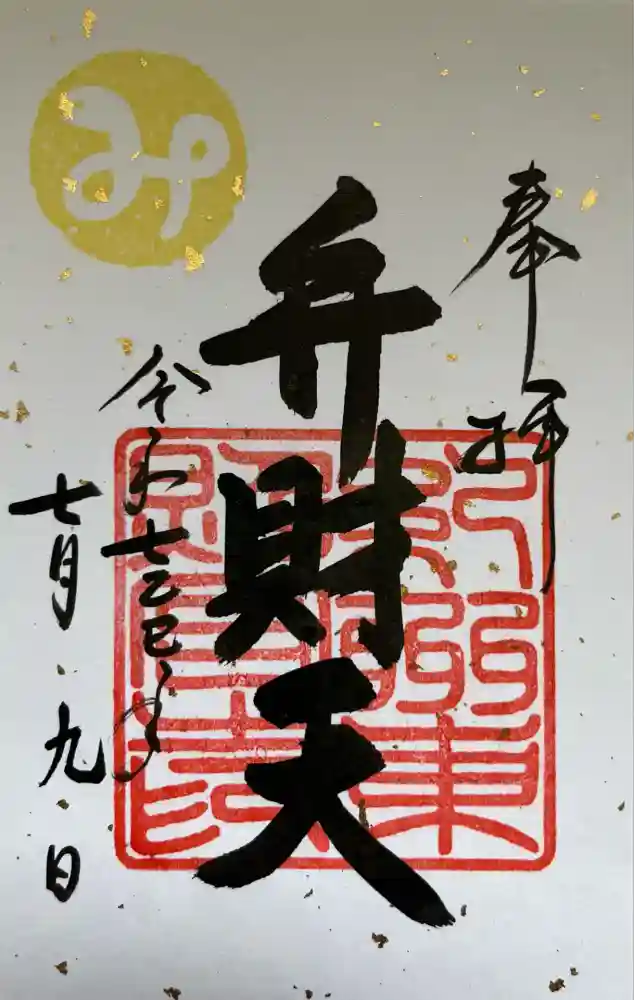 奉拝
弁財天
令和七乙巳年
七月九日
み